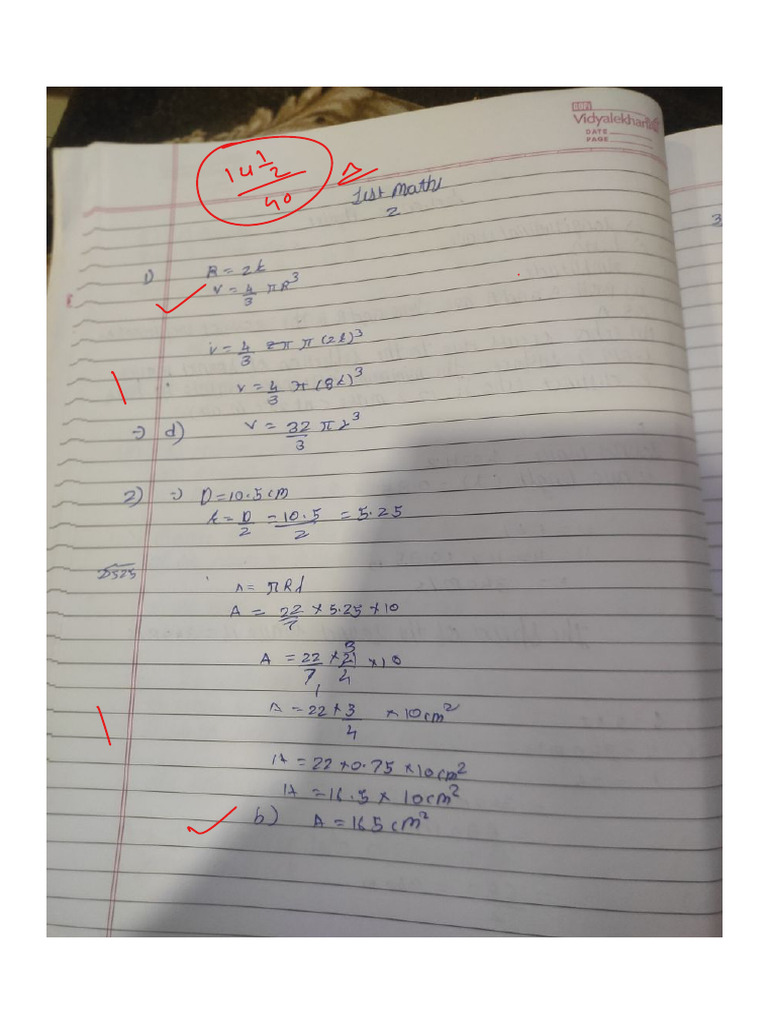 COPY
Vidyalekhan
DATE
PAGE
14 1/2 / 40
Test Maths
2
1) R = 2r
V = 4/3 πR³
V = 4/3 π (2r)³
V = 4/3 π (8r)³
⇒ d) V = 32/3 πr³
2) ⇒ D = 10.5 cm
r = D/2 = 10.5/2 = 5.25
A = πRl
A = 22/7 × 5.25 × 10
A = 22/7 × 21/4 × 10
A = 22 × 3/4 × 10 cm²
A = 22 × 0.75 × 10 cm²
A = 16.5 × 10 cm²
b) A = 165 cm²